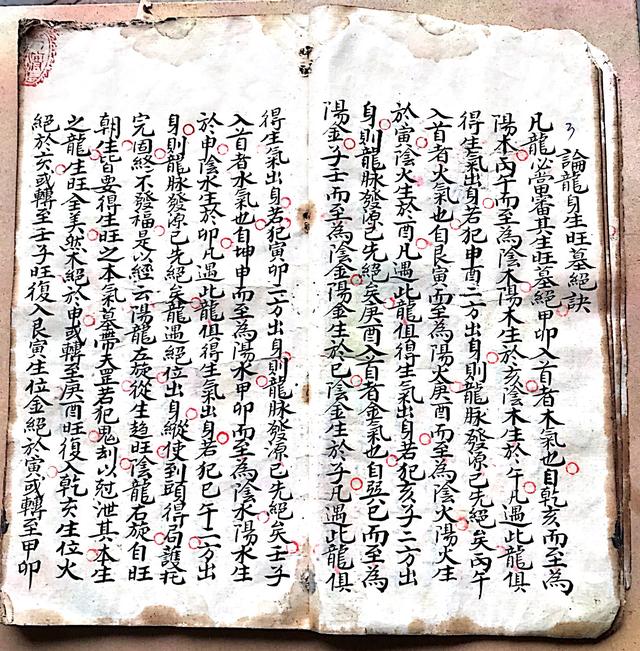 3
論龍身生旺墓絕訣
凡龍必當審其生旺墓絕甲卯入首者木氣也自乾亥而至為
陽木丙午而至為陰木陽木生於亥陰木生於午凡遇此龍俱
得生氣出身若犯申酉二方出身則龍脉發源已先絕矣丙午
入首者火氣也自艮寅而至為陽火庚酉而至為陰火陽火生
於寅陰火生於酉凡遇此龍俱得生氣出身若犯亥子二方出
身則龍脉發源已先絕矣庚酉入首者金氣也自巽巳而至為
陽金子壬而至為陰金陽金生於巳陰金生於子凡遇此龍俱
得生氣出身若犯寅卯二方出身則龍脉發源已先絕矣壬子
入首者水氣也自坤申而至為陽水甲卯而至為陰水陽水生
於申陰水生於卯凡遇此龍俱得生氣出身若犯巳午二方出
身則龍脉發源已先絕矣龍遇絕位出身縱使到頭得局護托
完固終不發福是以經云陽龍左旋從生趨旺陰龍右旋自旺
朝佳皆要得生旺之本氣墓帶天罡若犯鬼刦以尅泄其本生
之龍生旺全美然木絕於申或轉至庚酉旺復入乾亥生位火
絕於亥或轉至壬子旺復入艮寅生位金絕於寅或轉至甲卯